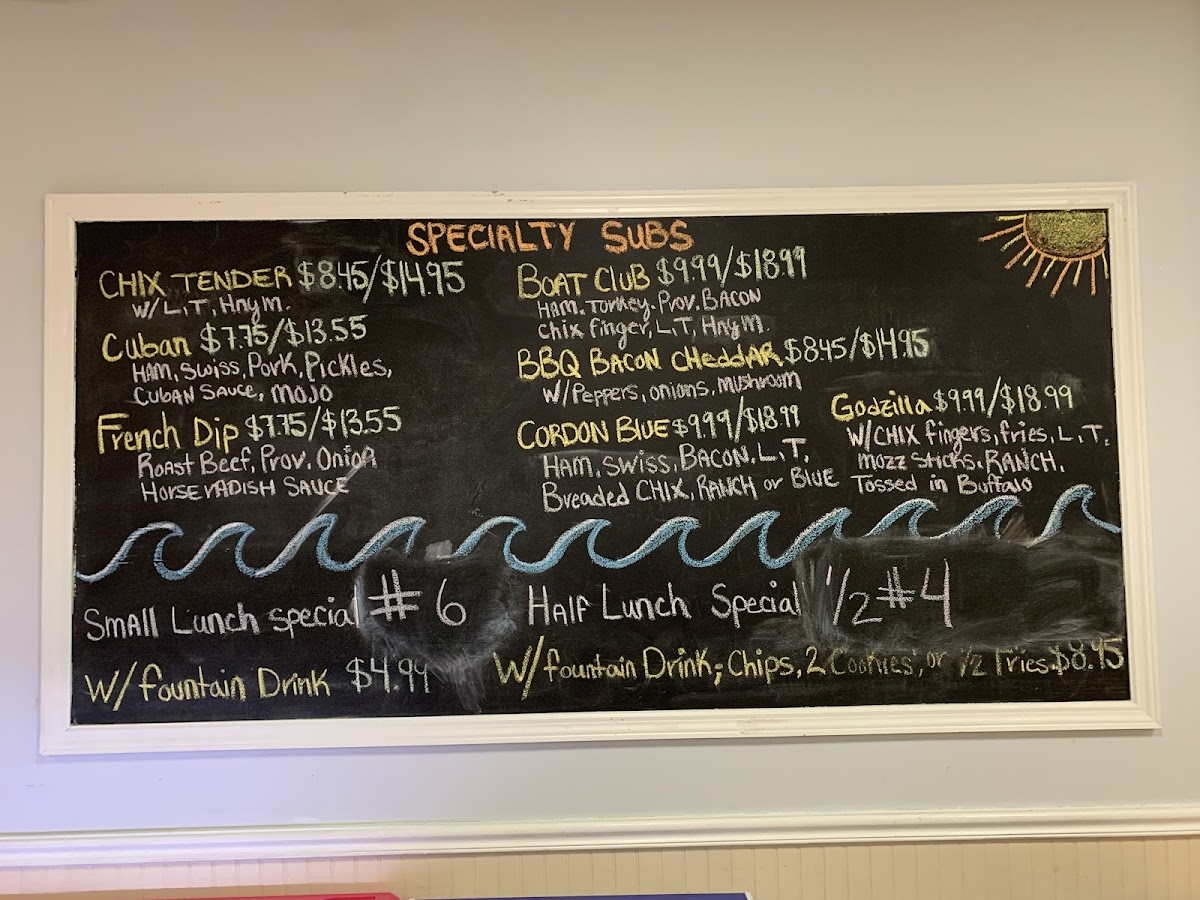 SPECIALTY SUBS
CHIX TENDER $8.45/$14.95
W/ L,T, Hny M.
Cuban $7.75/$13.55
HAM, Swiss, Pork, Pickles,
CUBAN SAUCE, MOJO
French Dip $7.75/$13.55
Roast Beef, Prov. Onion
HORSErADISH SAUCE
BOAT CluB $9.99/$18.99
HAM. Turkey. Prov. BACON
Chix finger, L,T, Hny M.
BBQ BACON CHeddAR $8.45/$14.95
W/ Peppers, onions, mushroom
CORDON BLUE $9.99/$18.99
HAM, SWISS, BACON, L,T,
Breaded CHIX, RANCH or BLUE
Godzilla $9.99/$18.99
W/CHIX fingers, fries, L,T,
MOZZ Sticks, RANCH,
Tossed in Buffalo
SMAll Lunch special #6
W/ fountain Drink $4.99
HAlf Lunch Special 1/2 #4
W/ fountain Drink, Chips, 2 Cookies, or 1/2 Fries $8.95